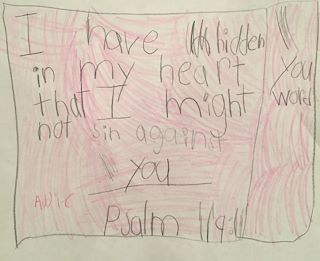 I have hidden
in my heart
that I might
not sin against
you
Psalm 119:11
Addie
you
word